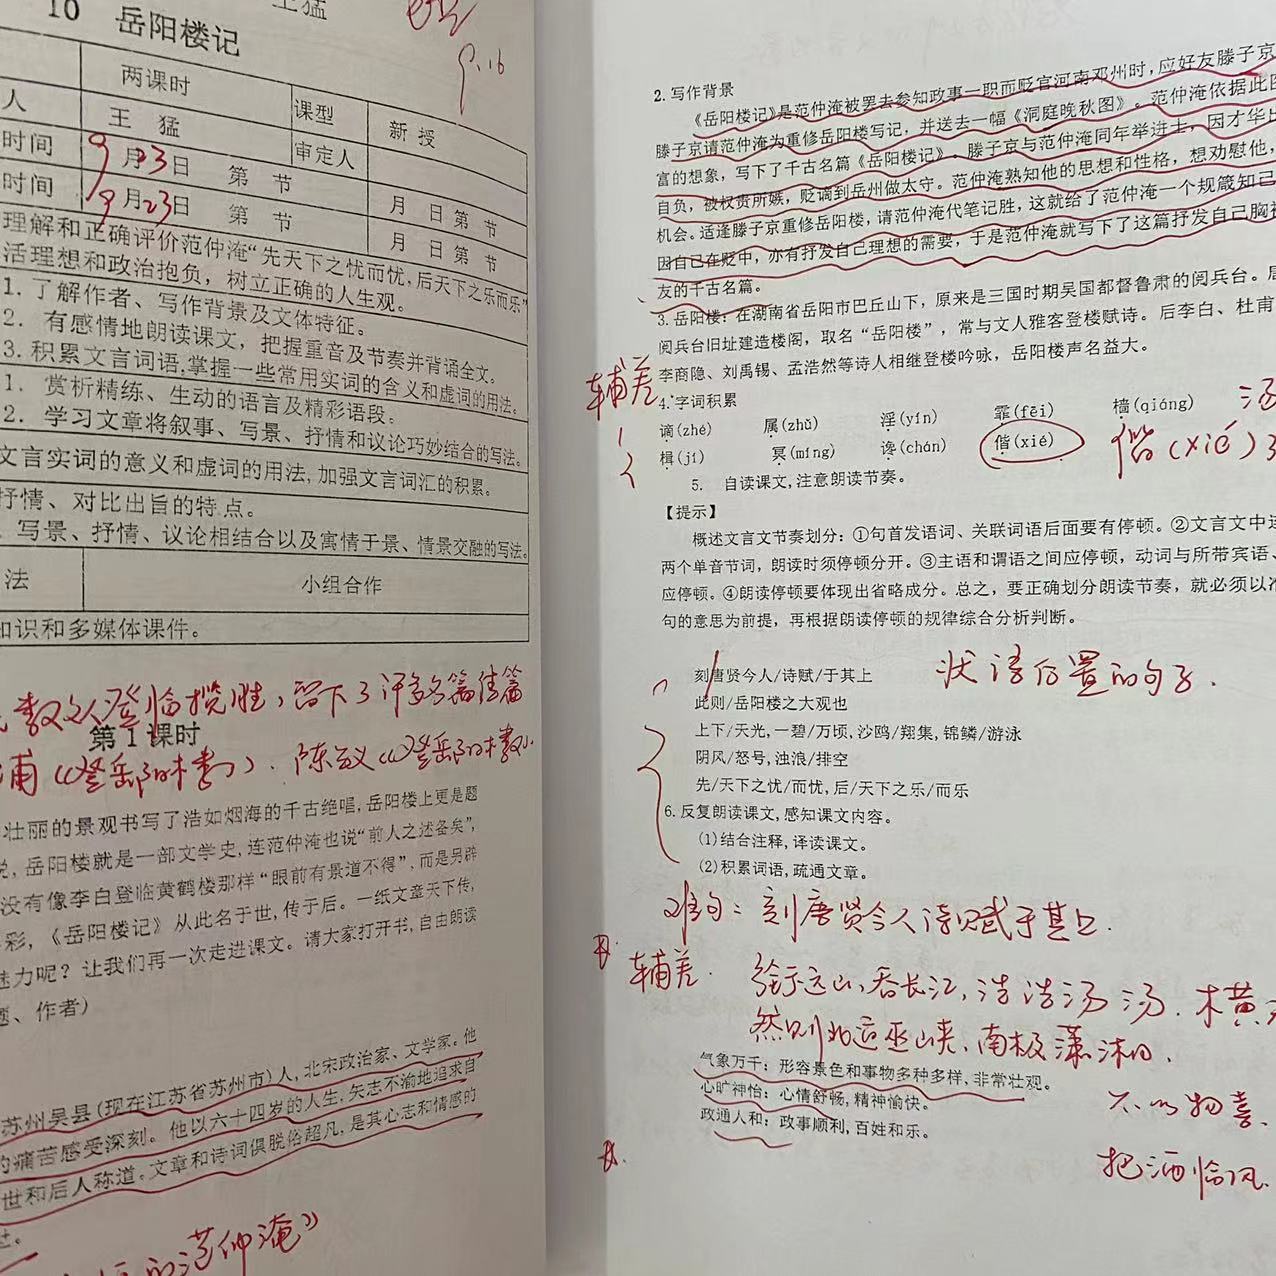 王猛
10 岳阳楼记
9.16
两课时
课型
新 授
人
王 猛
审定人
时间
9月23日 第 节
月 日 第 节
时间
9月23日 第 节
月 日 第 节
理解和正确评价范仲淹“先天下之忧而忧,后天下之乐而乐”
活理想和政治抱负，树立正确的人生观。
1.了解作者、写作背景及文体特征。
2. 有感情地朗读课文，把握重音及节奏并背诵全文。
3.积累文言词语,掌握一些常用实词的含义和虚词的用法。
1. 赏析精练、生动的语言及精彩语段。
2. 学习文章将叙事、写景、抒情和议论巧妙结合的写法。
文言实词的意义和虚词的用法,加强文言词汇的积累。
抒情、对比出旨的特点。
写景、抒情、议论相结合以及寓情于景、情景交融的写法。
法
小组合作
知识和多媒体课件。
数文人登临揽胜，留下了许多名篇佳篇
第1课时
甫《登岳阳楼》.陈与义《登岳阳楼》
壮丽的景观书写了浩如烟海的千古绝唱,岳阳楼上更是题
说,岳阳楼就是一部文学史,连范仲淹也说“前人之述备矣”,
没有像李白登临黄鹤楼那样“眼前有景道不得”,而是另辟
彩,《岳阳楼记》从此名于世,传于后。一纸文章天下传,
魅力呢？让我们再一次走进课文。请大家打开书,自由朗读
题、作者)
苏州吴县(现在江苏省苏州市)人,北宋政治家、文学家。他
的痛苦感受深刻。他以六十四岁的人生,矢志不渝地追求自
世和后人称道。文章和诗词俱脱俗超凡,是其心志和情感的
的范仲淹》
2.写作背景
《岳阳楼记》是范仲淹被罢去参知政事一职而贬官河南邓州时,应好友滕子京
滕子京请范仲淹为重修岳阳楼写记，并送去一幅《洞庭晚秋图》。范仲淹依据此图
富的想象，写下了千古名篇《岳阳楼记》。滕子京与范仲淹同年举进士，因才华出
自负，被权贵所嫉，贬谪到岳州做太守。范仲淹熟知他的思想和性格，想劝慰他，
机会。适逢滕子京重修岳阳楼，请范仲淹代笔记胜，这就给了范仲淹一个规箴知己
因自己在贬中，亦有抒发自己理想的需要，于是范仲淹就写下了这篇抒发自己胸
友的千古名篇。
3.岳阳楼：在湖南省岳阳市巴丘山下，原来是三国时期吴国都督鲁肃的阅兵台。
阅兵台旧址建造楼阁，取名“岳阳楼”，常与文人雅客登楼赋诗。后李白、杜甫
李商隐、刘禹锡、孟浩然等诗人相继登楼吟咏，岳阳楼声名益大。
辅差
4.字词积累
谪(zhé) 属(zhǔ) 淫(yín) 霏(fēi) 樯(qiáng)
楫(jí) 冥(míng) 谗(chán) 偕(xié) 偕(xié)
5. 自读课文,注意朗读节奏。
【提示】
概述文言文节奏划分：①句首发语词、关联词语后面要有停顿。②文言文中
两个单音节词，朗读时须停顿分开。③主语和谓语之间应停顿，动词与所带宾语、
应停顿。④朗读停顿要体现出省略成分。总之，要正确划分朗读节奏，就必须以
句的意思为前提，再根据朗读停顿的规律综合分析判断。
刻唐贤今人/诗赋/于其上 状语后置的句子.
此则/岳阳楼之大观也
上下/天光,一碧/万顷,沙鸥/翔集,锦鳞/游泳
阴风/怒号,浊浪/排空
先/天下之忧/而忧,后/天下之乐/而乐
6.反复朗读课文,感知课文内容。
(1)结合注释,译读课文。
(2)积累词语,疏通文章。
难句：刻唐贤今人诗赋于其上.
辅差. 衔远山,吞长江,浩浩汤汤.横
然则北通巫峡,南极潇湘.
气象万千：形容景色和事物多种多样,非常壮观。
心旷神怡：心情舒畅,精神愉快。
不以物喜.
政通人和：政事顺利,百姓和乐。
把酒临风.